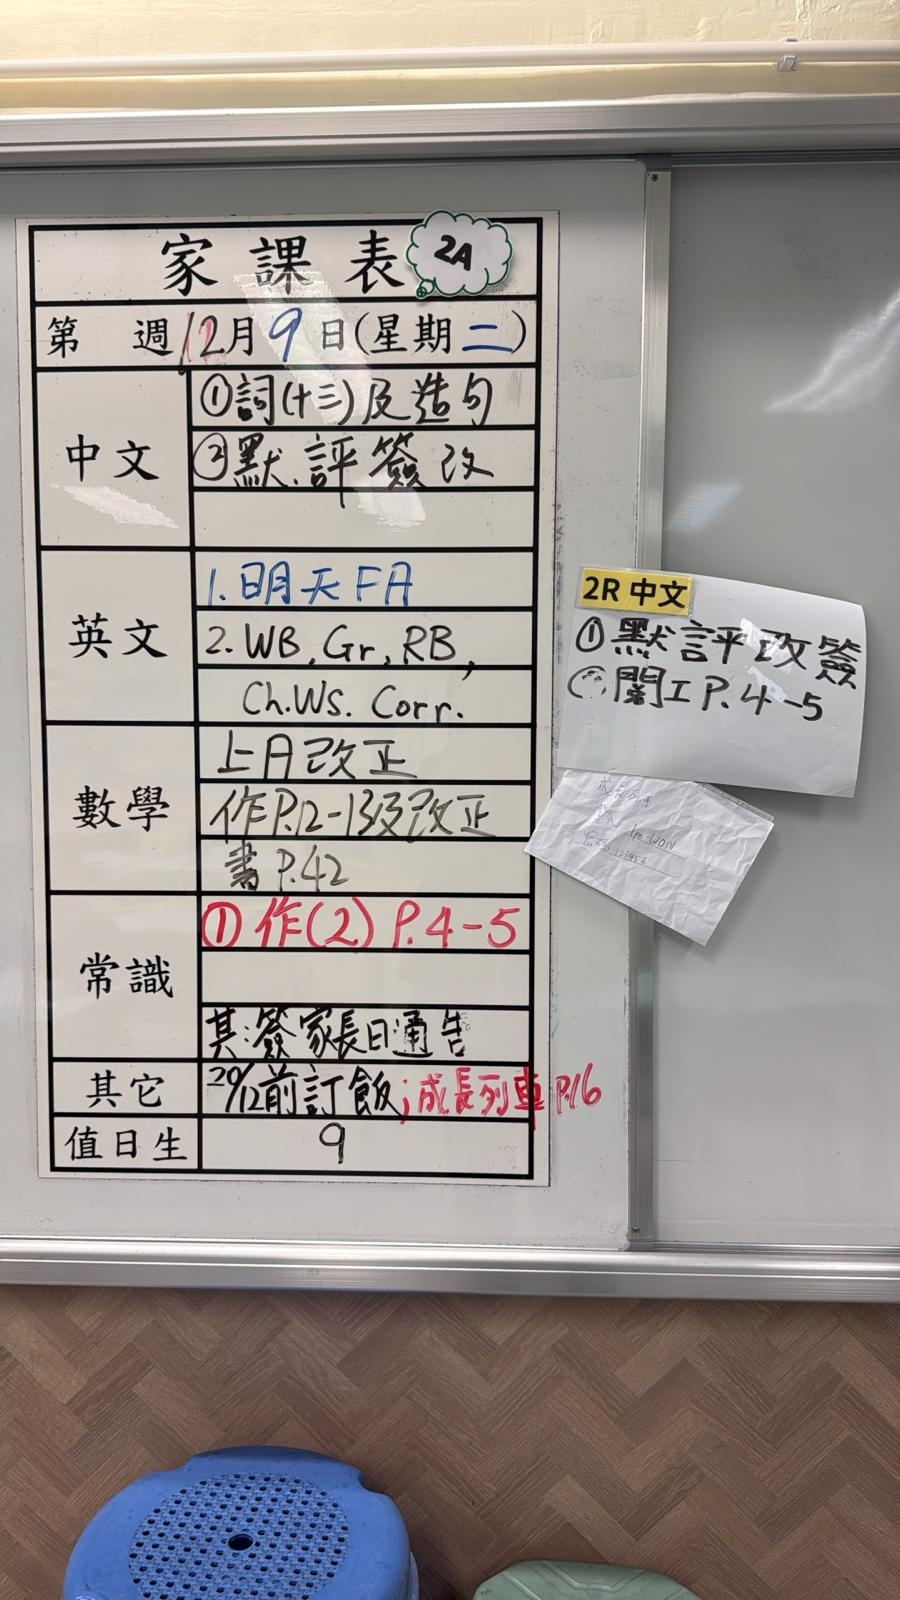 家課表 2A
第 週 12月9日(星期二)
中文
①詞(十三)及造句
②默.評簽改
英文
1. 明天FA
2. WB, Gr, RB,
Ch.Ws. Corr.
數學
上A改正
作P.12-13及改正
書P.42
常識
① 作(2) P.4-5
其:簽家長日通告
其它
20/12前訂飯;成長列車 P.16
值日生
9
2R 中文
①默評改簽
閱工P.4-5
成長列車
登入